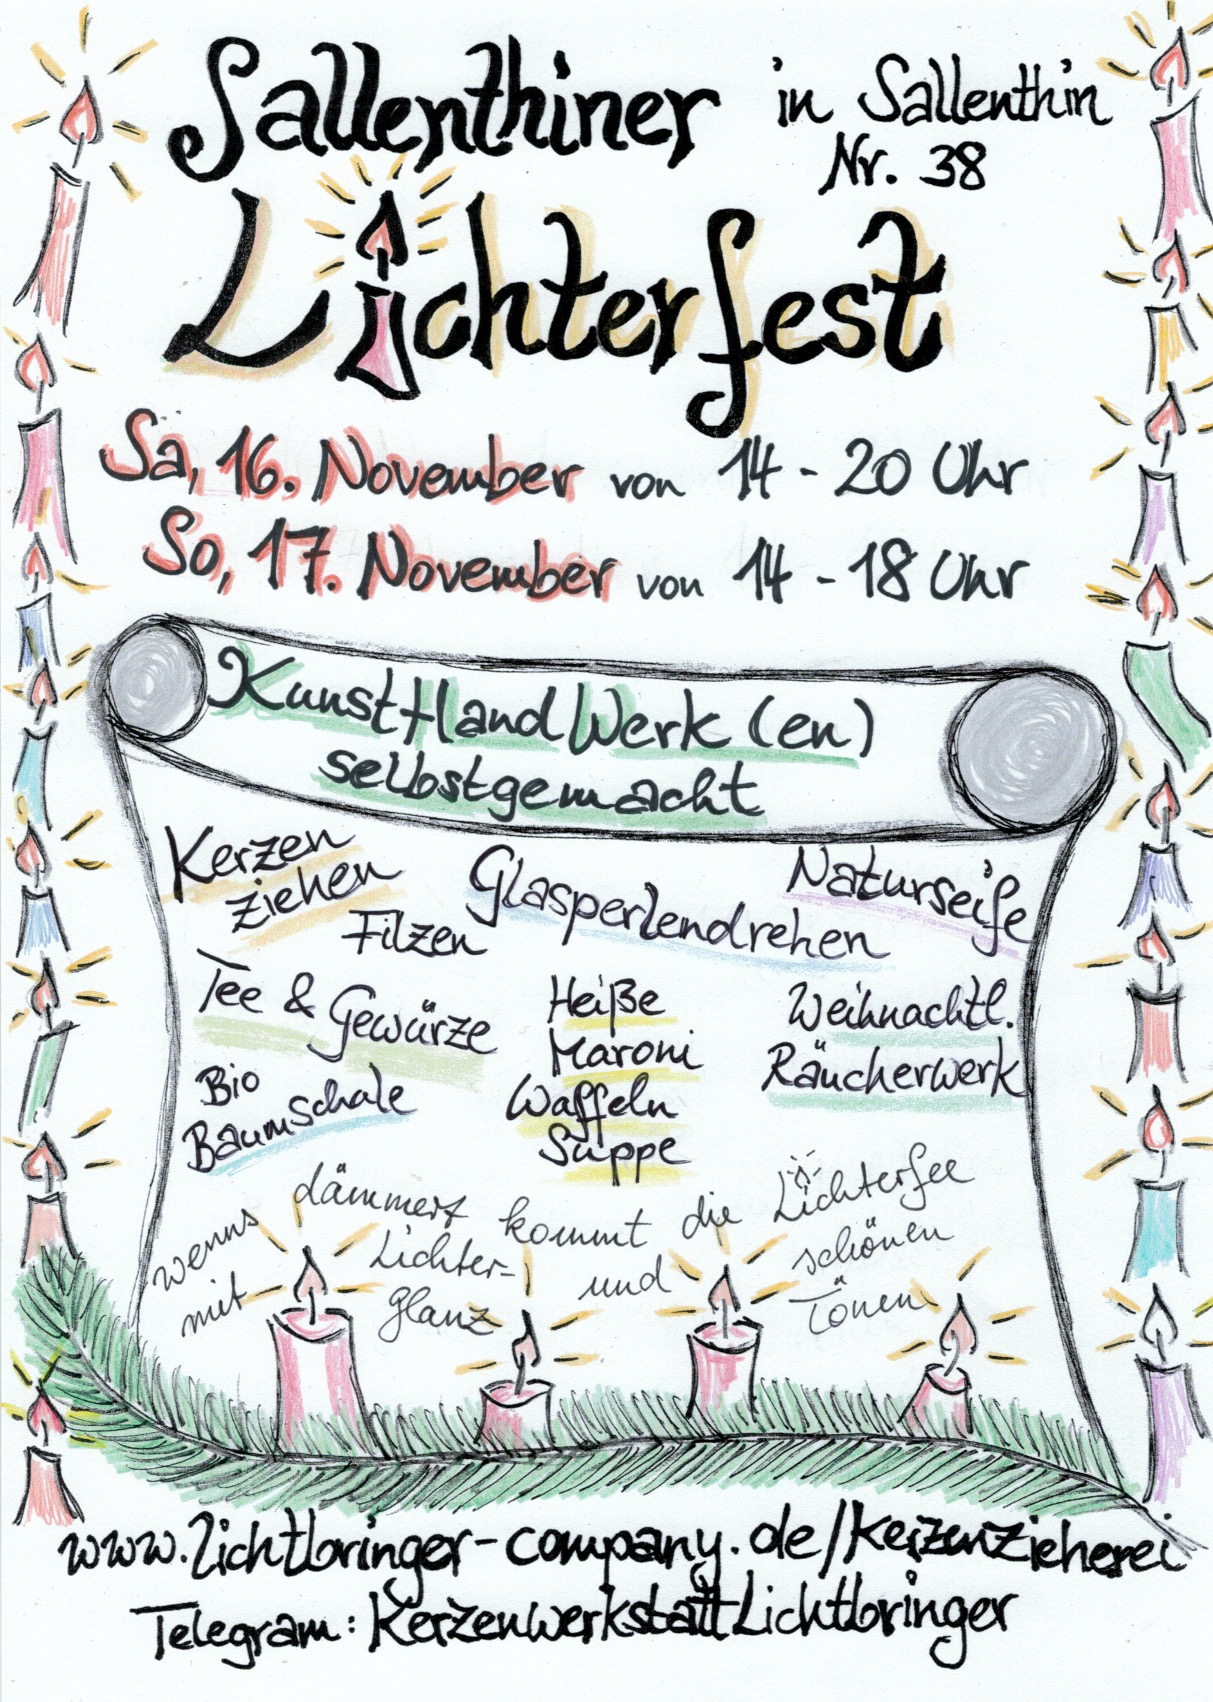 Sallenthiner
in Sallenthin
Nr. 38
Lichterfest
Sa, 16. November von 14 - 20 Uhr
So, 17. November von 14 - 18 Uhr
KunstHandWerk (en)
selbstgemacht
Kerzen
ziehen
Filzen
Glasperlendrehen
Naturseife
Tee & Gewürze
Heiße
Maroni
Waffeln
Suppe
Weihnachtl.
Räucherwerk
Bio
Baumschule
wenn's dämmert kommt die Lichterfee
mit Lichter-
glanz und schönen
Tönen
www.lichtbringer-company.de/Kerzenzieherei
Telegram: KerzenwerkstattLichtbringer